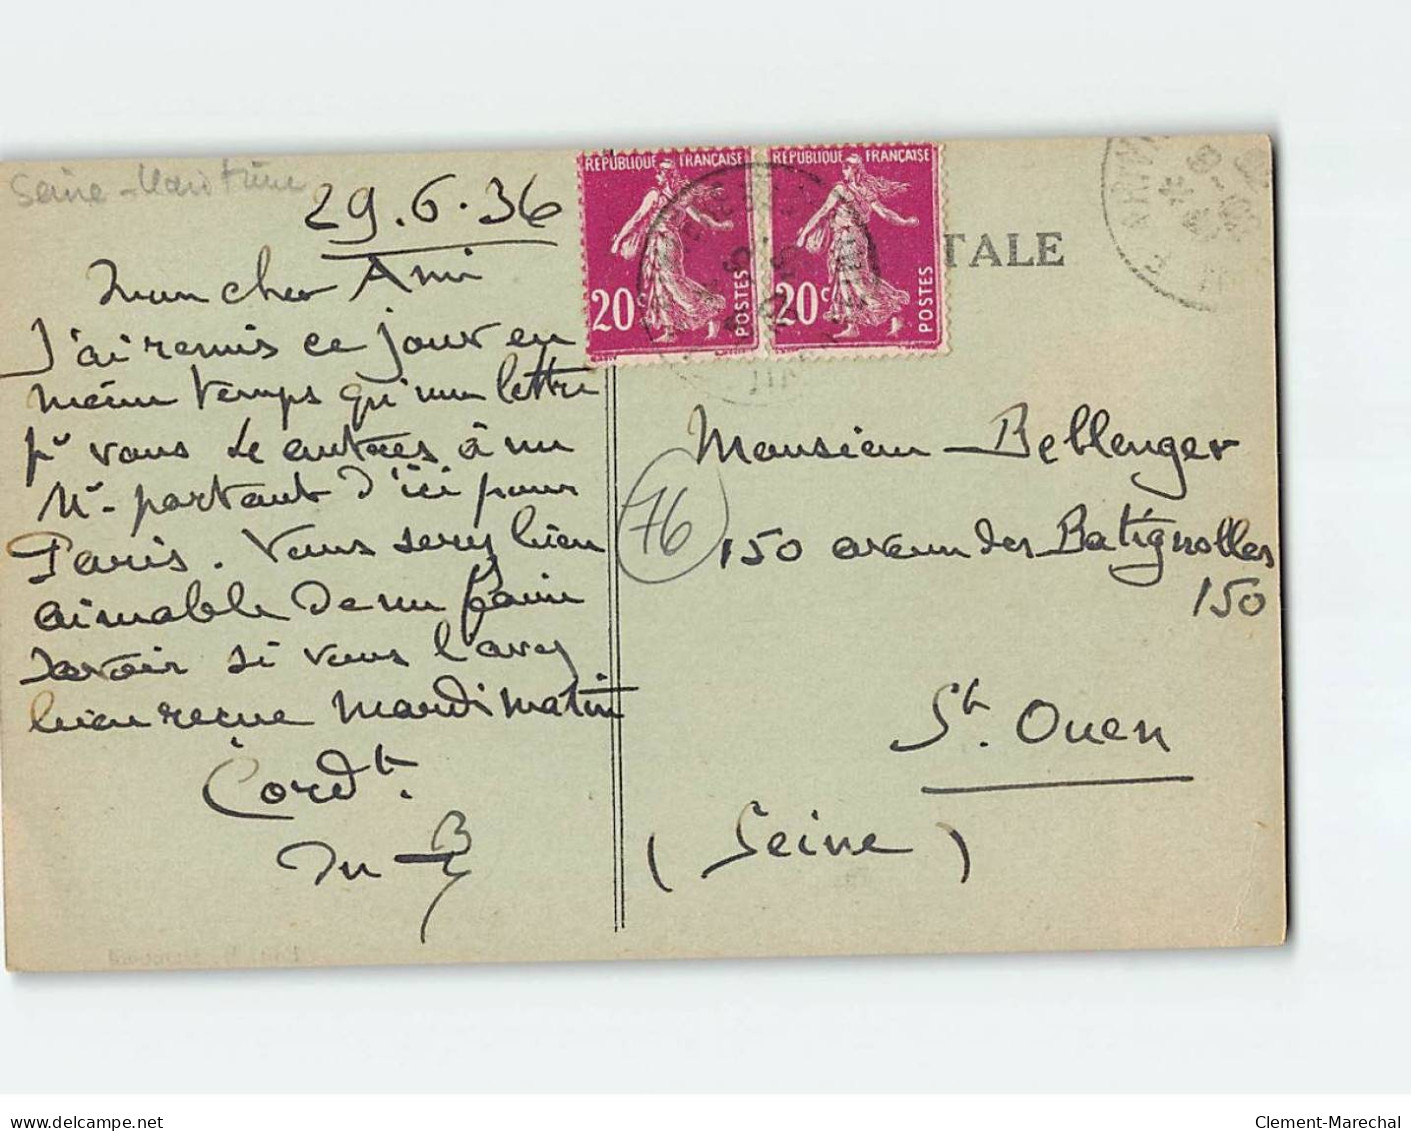 Seine-Maritime
29.6.36
Mon cher Ami
J'ai remis ce jour en
même temps qu'une lettre
pr vous de autres à un
Mr. partant d'ici pour
Paris. Vous serez bien
aimable de me faire
savoir si vous l'avez
bien reçue mardi matin
Cordt.
REPUBLIQUE FRANÇAISE
20c
POSTES
REPUBLIQUE FRANÇAISE
20c
POSTES
TALE
Monsieur Bellenger
76
150 avenue des Batignolles
150
St. Ouen
(Seine)
delcampe.net
Clement-Marechal